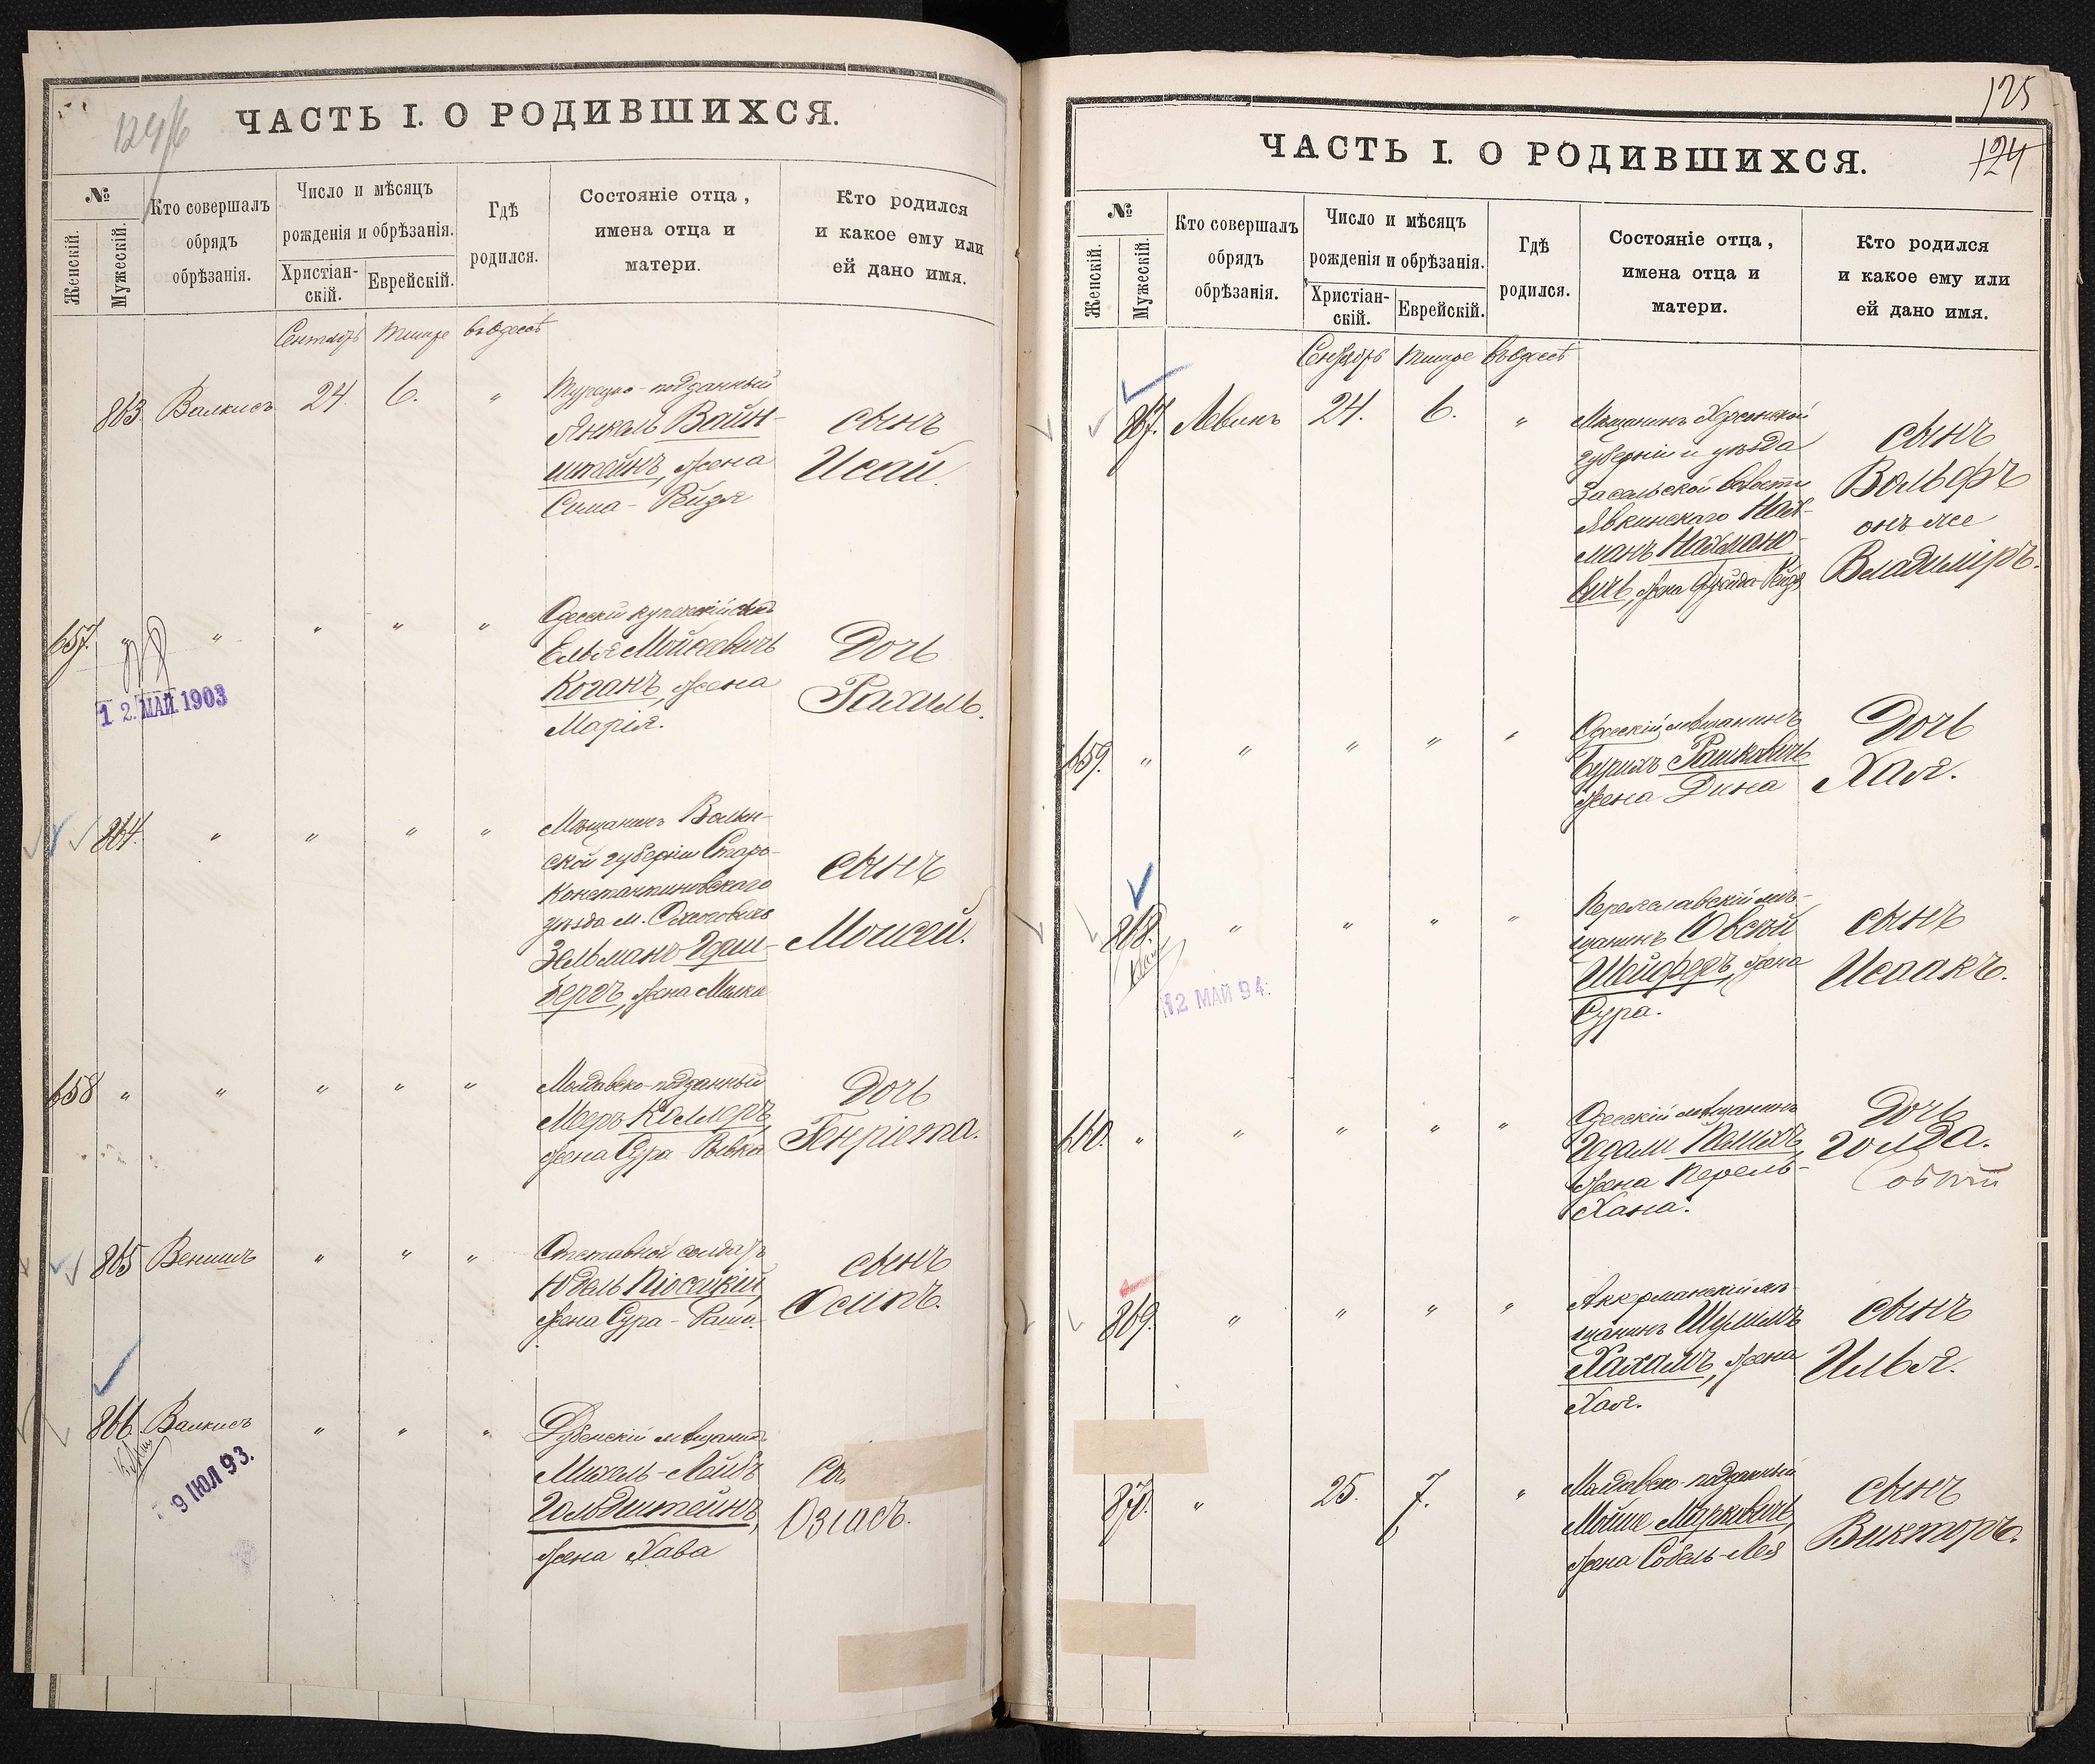 124/б
ЧАСТЬ I. О РОДИВШИХСЯ.
№
Женскій.
Мужескій.
Кто совершалъ
обрядъ
обрѣзанія.
Число и мѣсяцъ
рожденія и обрѣзанія.
Христіан-
скій.
Еврейскій.
Гдѣ
родился.
Состояніе отца,
имена отца и
матери.
Кто родился
и какое ему или
ей дано имя.
Сентябрь Тишре въ Одессѣ
863. Валкисъ 24. 6. "
Турецко-подданный
Янкель Вайн-
штейнъ, жена
Сима-Рейзя
сынъ
Исай.
657. " " " " "
12. МАЙ. 1903
Одесскій купеческій сынъ
Елья Мойсеевичъ
Коганъ, жена
Марія.
Дочь
Рахиль.
864. " " " "
Мѣщанинъ Волын-
ской губерніи Старо-
константиновскаго
уѣзда м.
Зельманъ Один-
бергъ, жена Милка
сынъ
Моисей.
658 " " " " "
Молдавско-подданный
Меръ Коллеръ,
жена Сура-Ривка
Дочь
Генріета.
865 Венишъ " " "
Отставной солдатъ
Юдель Пісоцкій,
жена Сура-Раши.
сынъ
Осипъ.
866. Валкисъ " " "
9 ІЮЛ 93.
Дубенскій мѣщанинъ
Михель-Лейбъ
Гольдштейнъ,
жена Хава
Озіасъ.
125
124
ЧАСТЬ I. О РОДИВШИХСЯ.
№
Женскій.
Мужескій.
Кто совершалъ
обрядъ
обрѣзанія.
Число и мѣсяцъ
рожденія и обрѣзанія.
Христіан-
скій.
Еврейскій.
Гдѣ
родился.
Состояніе отца,
имена отца и
матери.
Кто родился
и какое ему или
ей дано имя.
Сентябрь Тишре въ Одессѣ
867. Левинъ 24. 6. "
Мѣщанинъ Херсонской
губерніи и уѣзда
Засельской волости
Явкинскаго Нах-
манъ Нахмано-
вичъ, жена Фрейда-Рейзя
сынъ
Вольфъ
онъ же
Владиміръ.
659. " " " " "
Одесскій мѣщанинъ
Бурихъ Рашковичъ
жена Дина
Дочь
Хая.
868. " " " "
12 МАЙ 94.
Переяславскій мѣ-
щанинъ Овсей
Шейферъ, жена
Сура.
сынъ
Исаакъ.
660. " " " " "
Одесскій мѣщанинъ
Гедали Пелихъ,
жена Перель-
Хана.
Дочь
Голда.
869. " " " "
Аккерманскій мѣ-
щанинъ Шулимъ
Хахамъ, жена
Хая.
сынъ
Илья.
870. " 25. 7. "
Молдавско-подданный
Мойше Марковичъ,
жена Собель-Лея
сынъ
Викторъ.